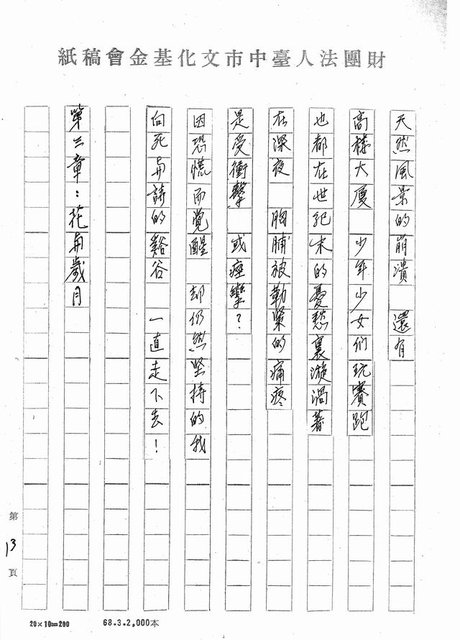 財團法人臺中市文化基金會稿紙
天然風景的崩潰　還有
高樓大廈　少年少女們玩賽跑
也都在世紀末的憂愁裏漩渦著
在深夜　胸脯被勒緊的痛疼
是受衝擊　或痙攣？
因恐慌而覺醒　却仍然坚持的我
向死与詩的谿谷　一直走下去！
第三章：花与歲月
第13頁
20×10=200
68.3.2,000本